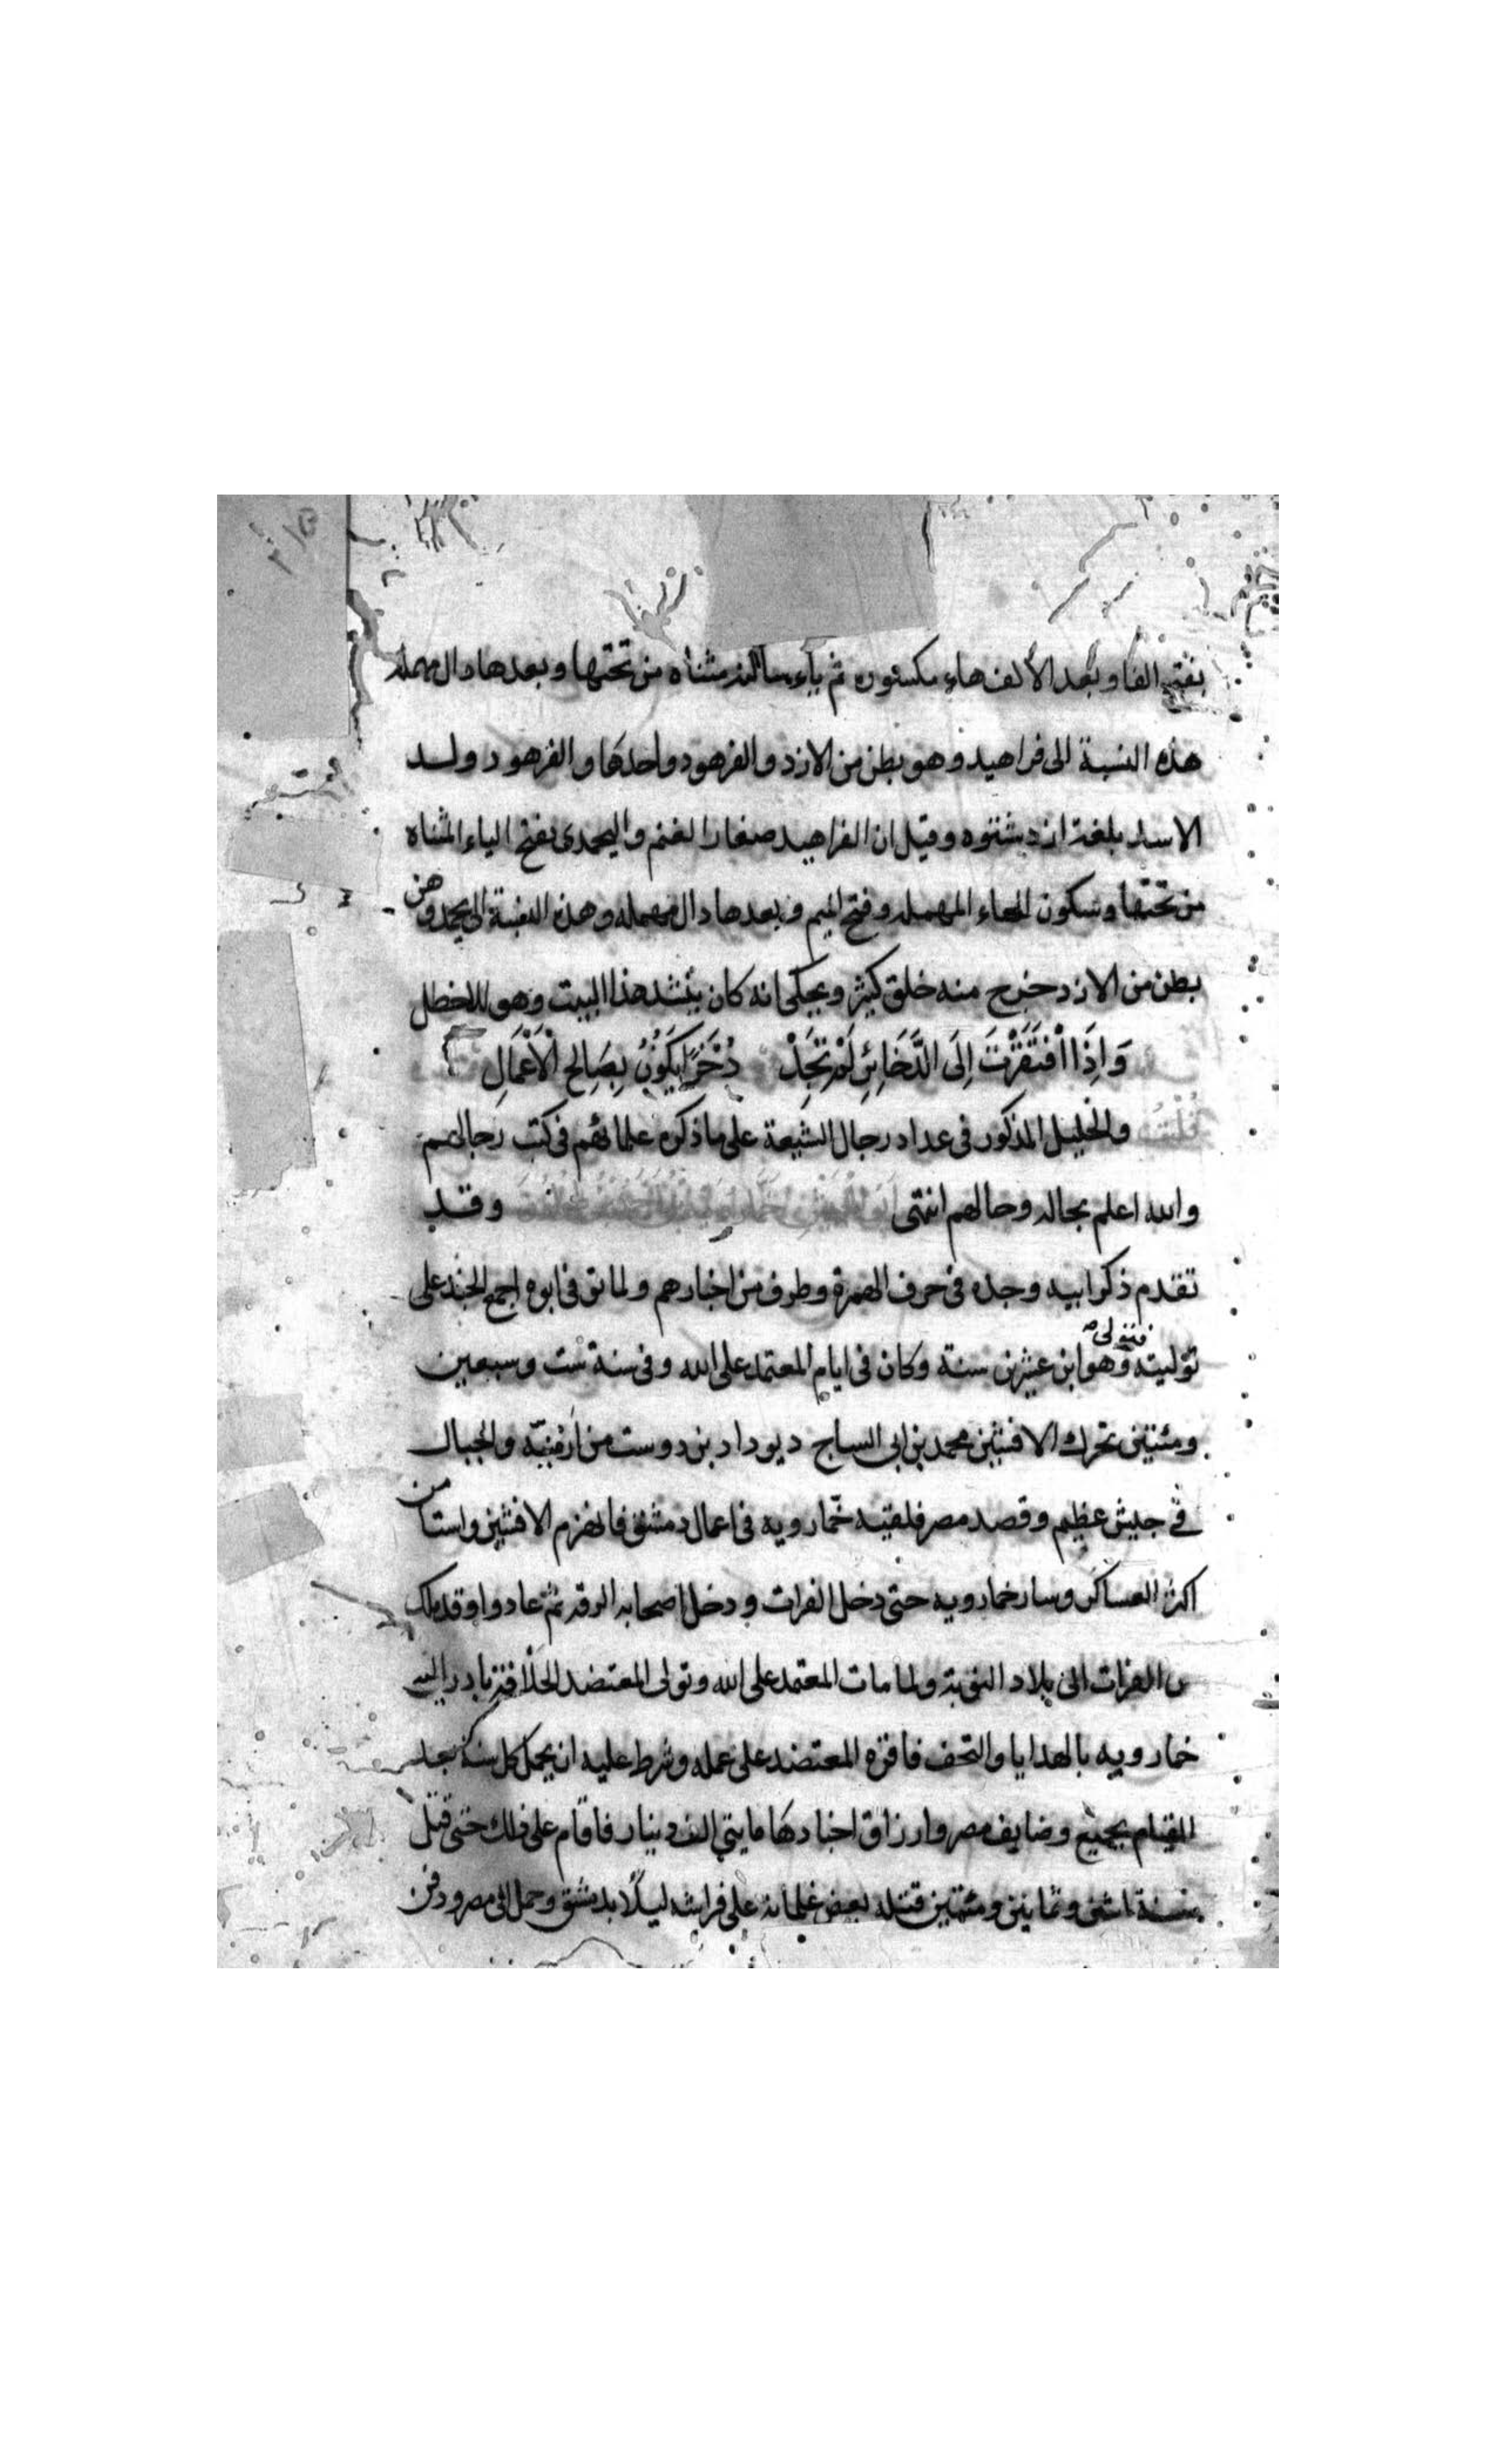 بفتح الفا وبعد الالف هاء مكسوره ثم ياء ساكنه مثناه من تحتها وبعدها دال مهمله
هذه النسبة الى فراهيد وهو بطن من الازد والفرهود واحدها والفرهود ولد
الاسد بلغة ازد شنوه وقيل ان الفراهيد صغار الغنم واليحمدى بفتح الياء المثناه
من تحتها وسكون الحاء المهمله وفتح الميم وبعدها دال مهمله وهذه النسبة الى يحمد وهى
بطن من الازد خرج منه خلق كثير ويحكى انه كان ينشد هذا البيت وهو للاخطل
وَاِذَا افْتَقَرْتَ اِلَى الذَّخَائِرِ لَمْ تَجِدْ ذُخْرًا يَكُوْنُ بِصَالِحِ الْاَعْمَالِ
قلت والخليل المذكور فى عداد رجال الشيعة على ما ذكره علمائهم فى كتب رجالهم
والله اعلم بحاله وحالهم انتهى وقد
تقدم ذكر ابيه وجده فى حرف الهمزة وطرف من اخبارهم ولما توفى ابوه اجمع الجند على
توليته فتولى وهو ابن عشرين سنة وكان فى ايام المعتمد على الله وفى سنة ست وسبعين
ومئتين تحرك الافشين محمد بن ابى الساج ديوداد بن دوست من ارمنيّه والجبال
فى جيش عظيم وقصد مصر فلقيه خمارويه فى اعمال دمشق فانهزم الافشين واستامن
اكثر العساكر وسار خمارويه حتى دخل الفرات ودخل اصحابه الرقه ثم عادوا وقد ملك
من الفرات الى بلاد النوبة ولما مات المعتمد على الله وتولى المعتضد الخلافة بادر اليه
خمارويه بالهدايا والتحف فاقره المعتضد على عمله وشرط عليه ان يحمل كل سنة بعد
القيام بجميع وضايف مصر وارزاق اجنادها مايتي الف دينار فاقام على ذلك حتى قتل
سنة اثنى وثمانين ومئتين قتله بعض غلمانه على فراشه ليلًا بدمشق وحمل الى مصر ودفن